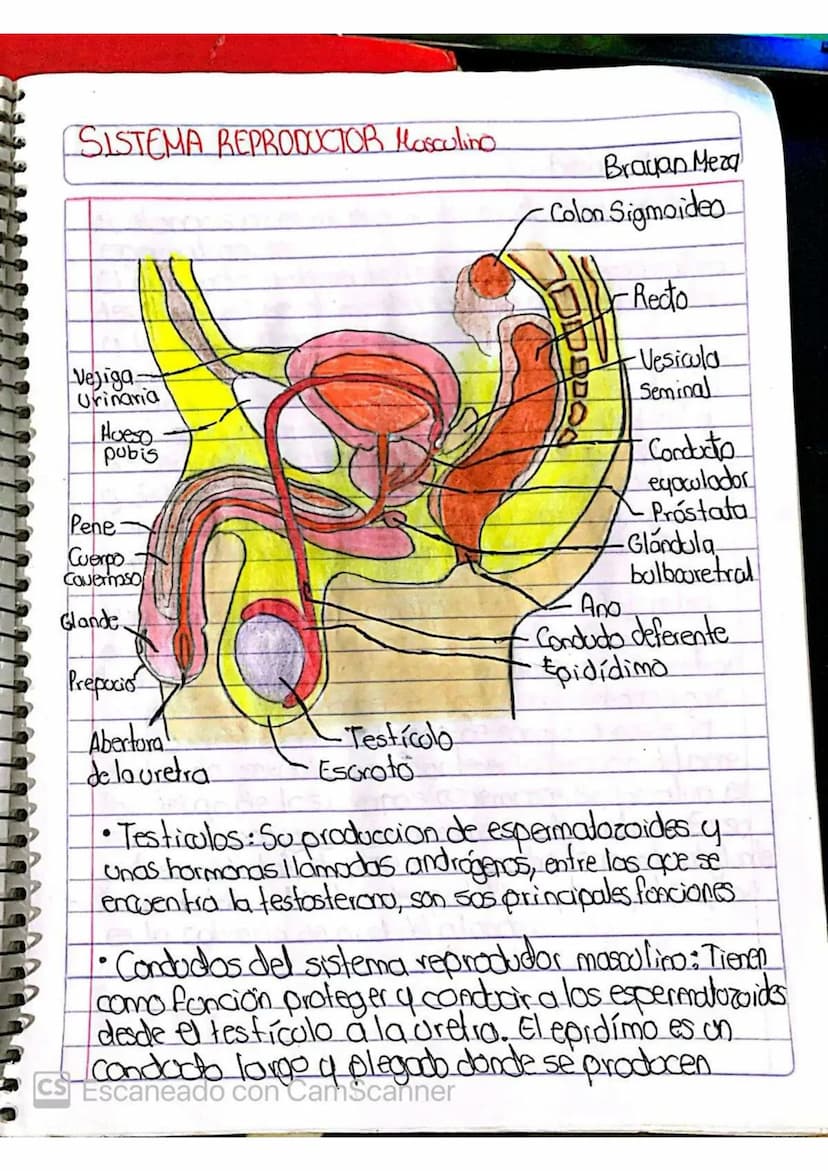 SISTEMA REPRODUCTOR Masculino
Brayan Meza
Colon Sigmoideo
Recto
Vesicula
Seminal
Vejiga
Urinaria
Hueso
pubis
Conducto
eyaculador
Próstata
Glándula
bulbouretral
Pene
Cuerpo
cavernoso
Glande
Prepocio
Ano
Conducto deferente
Epidídimo
Abertura
de la uretra
Testículo
Escroto
• Testiculos: Su produccion de espermatozoides y
unas hormonas llamadas andrógenos, entre las que se
encuentra la testosterona, son sus principales funciones
• Conductos del sistema reproductor masculino: Tienen
como función proteger y conducir a los espermatozoides
desde el testículo a la uretra. El epidímo es un
conducto largo y plegado donde se producen
CS Escaneado con CamScanner